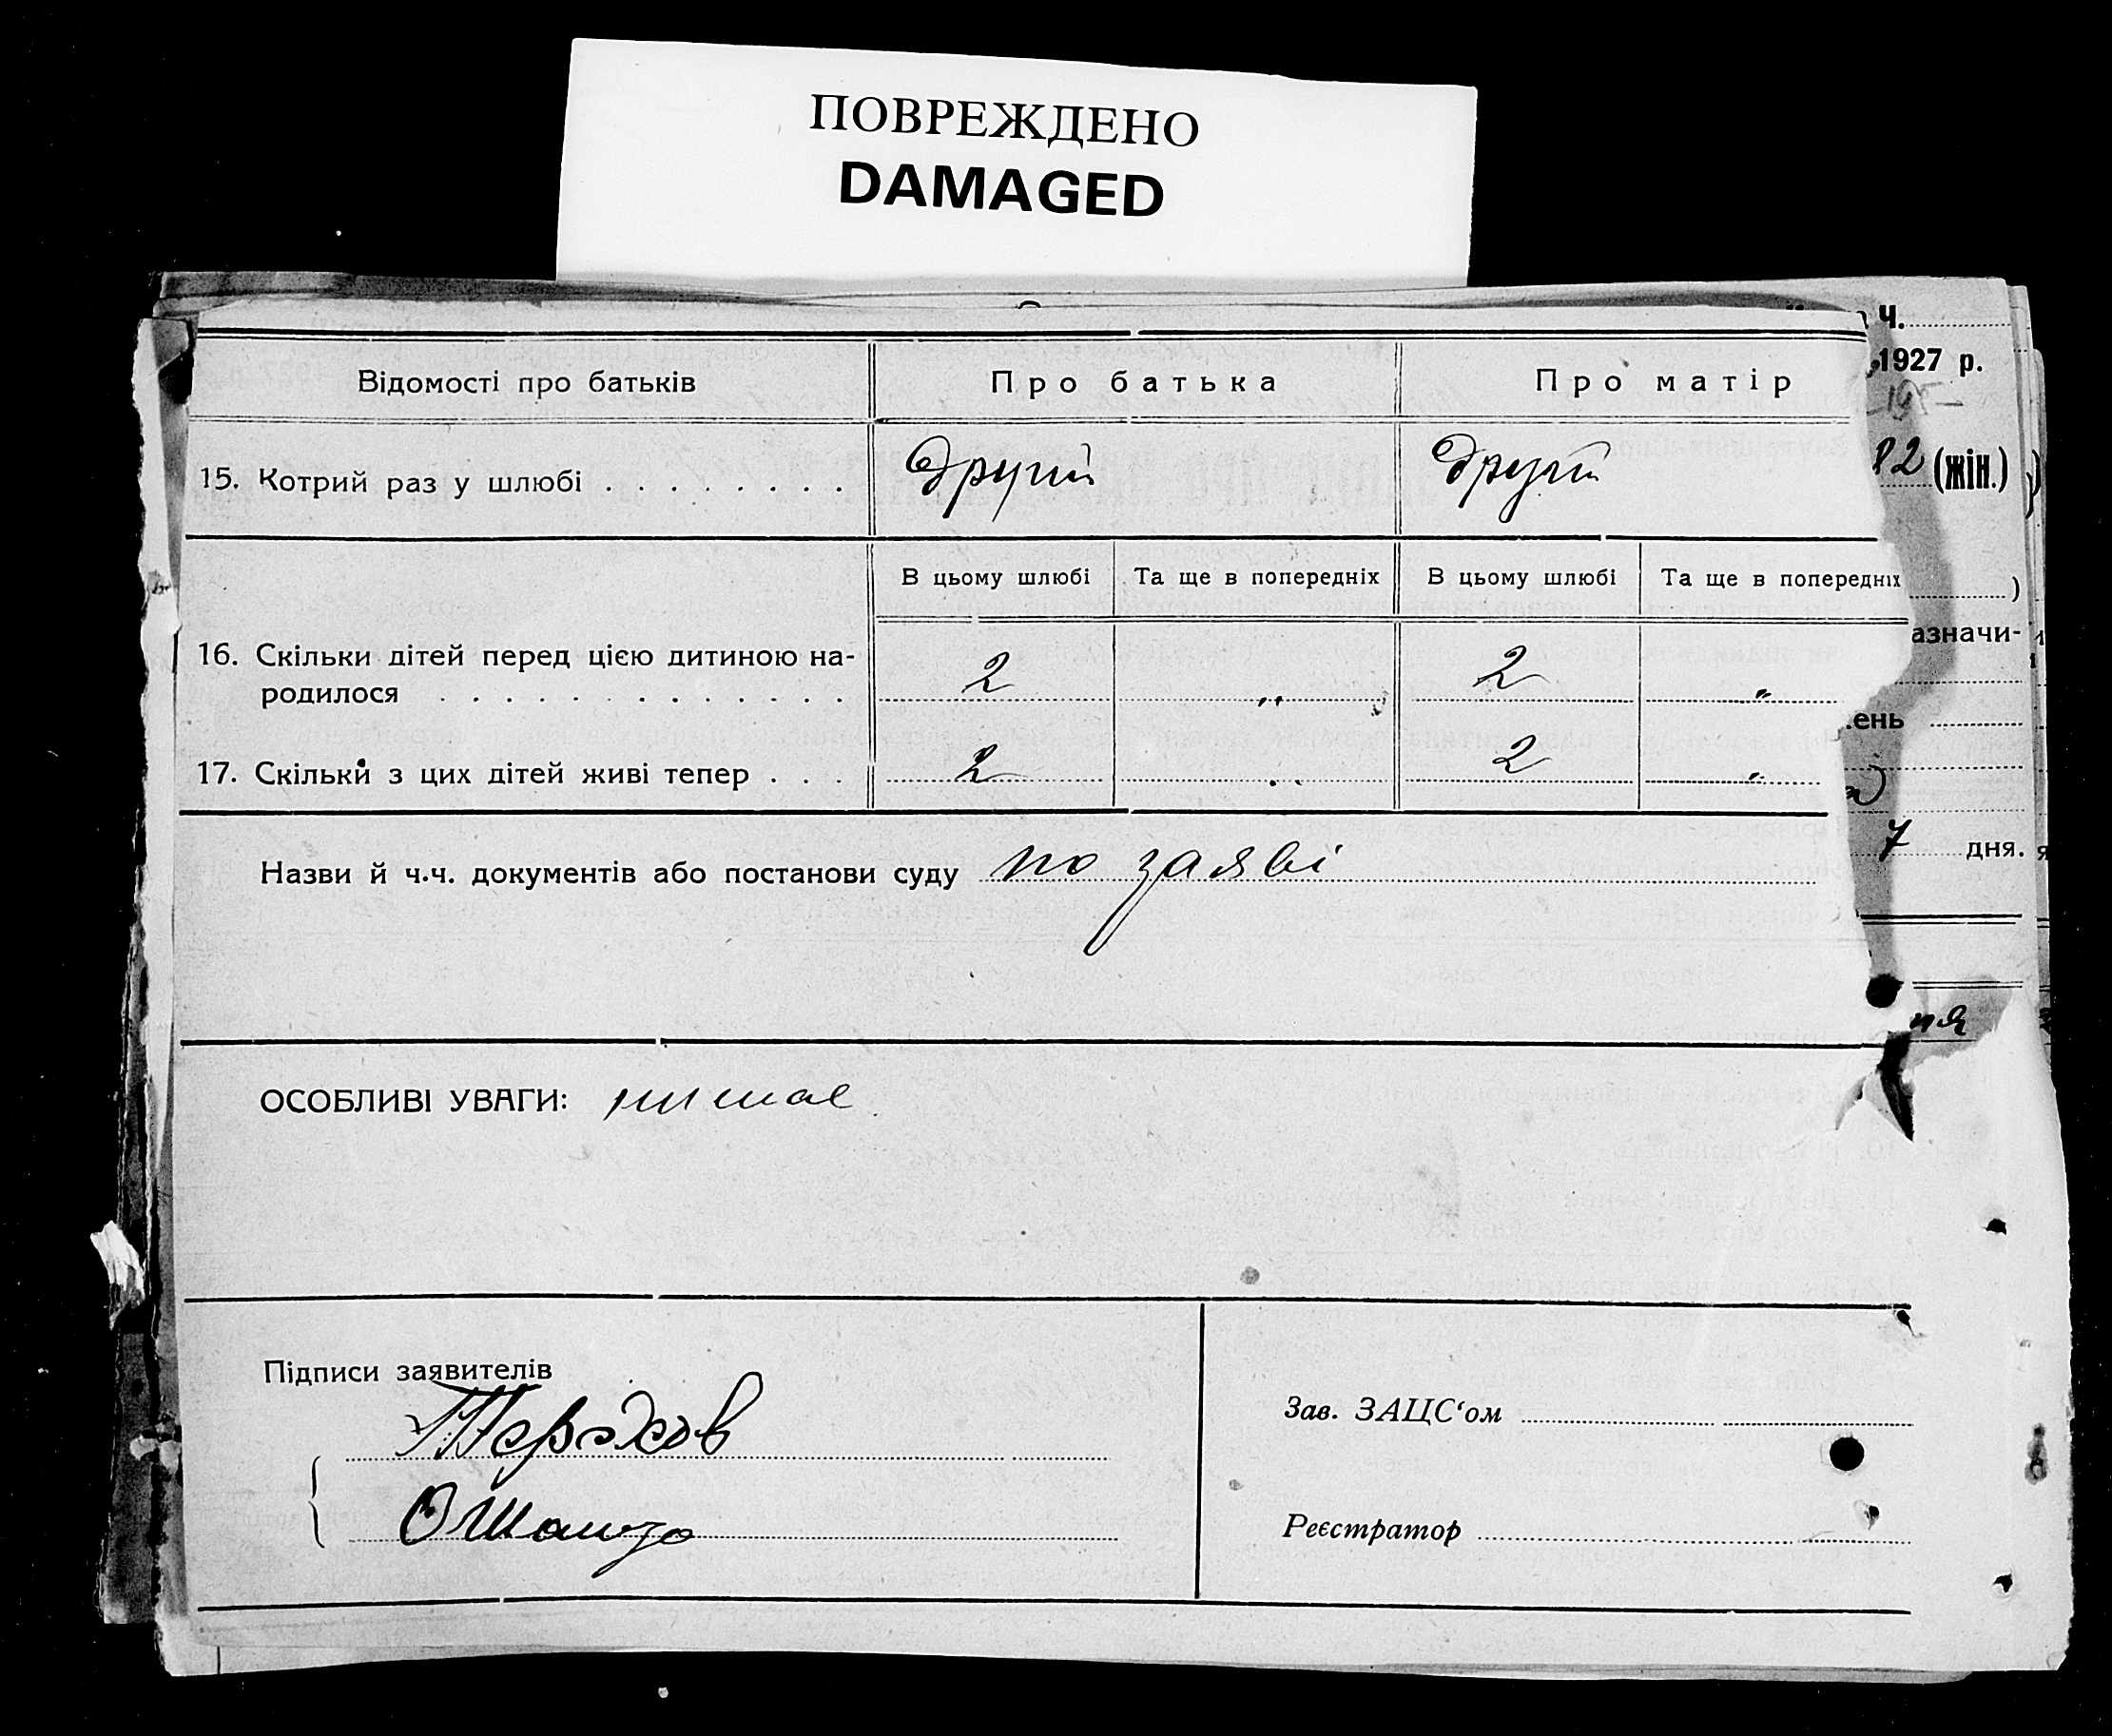 ПОВРЕЖДЕНО
DAMAGED
Ч.
1927 р.
Відомості про батьків
Про батька
Про матір
15. Котрий раз у шлюбі . . . . . . . .
другий
другий
82 (жін.)
В цьому шлюбі
Та ще в попередніх
В цьому шлюбі
Та ще в попередніх
)
16. Скільки дітей перед цією дитиною на-
азначи-
родилося . . . . . . . . . . . . .
2
„
2
„
ень
17. Скільки з цих дітей живі тепер . . .
2
„
2
„
7 дня.
Назви й ч.ч. документів або постанови суду по заяві
ня
ОСОБЛИВІ УВАГИ: немає
Підписи заявителів
Терехов
Зав. ЗАЦС‘ом
Реєстратор